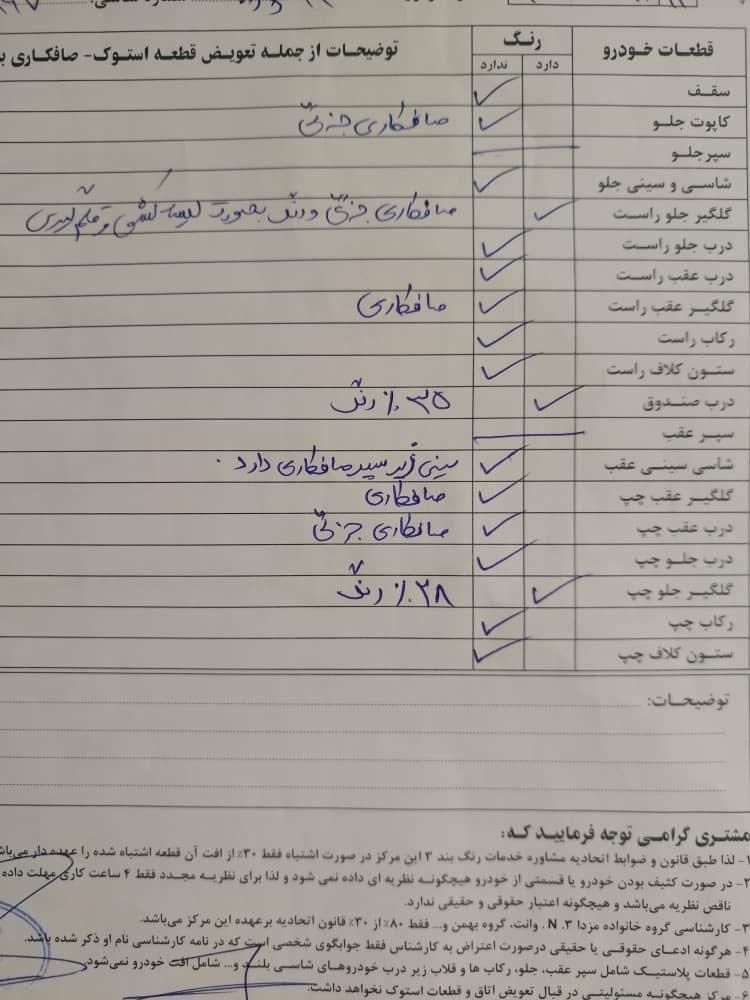 شماره شاسی:
قطعات خودرو رنگ توضیحات از جمله تعویض قطعه استوک- صافکاری
دارد ندارد
سقف ✓
کاپوت جلو ✓ صافکاری جزئی
سپر جلو —
شاسی و سینی جلو ✓
گلگیر جلو راست ✓ صافکاری جزئی و رنگ بصورت لیسه کشی و قلم گیری
درب جلو راست ✓
درب عقب راست ✓
گلگیر عقب راست ✓ صافکاری
رکاب راست ✓
ستون کلاف راست ✓
درب صندوق ✓ ۳۵٪ رنگ
سپر عقب —
شاسی سینی عقب ✓ سینی زیر سپر صافکاری دارد .
گلگیر عقب چپ ✓ صافکاری
درب عقب چپ ✓ صافکاری جزئی
درب جلو چپ ✓
گلگیر جلو چپ ✓ ۲۸٪ رنگ
رکاب چپ ✓
ستون کلاف چپ ✓
توضیحات:
مشتری گرامی توجه فرمایید که:
۱- لذا طبق قانون و ضوابط اتحادیه مشاوره خدمات رنگ بند ۳ این مرکز در صورت اشتباه فقط ۳۰٪ از افت آن قطعه اشتباه شده را عهده دار می‌باشد
۲- در صورت کثیف بودن خودرو یا قسمتی از خودرو هیچگونه نظریه ای داده نمی شود و لذا برای نظریه مجدد فقط ۴ ساعت کاری مهلت داده
ناقص نظریه می‌باشد و هیچگونه اعتبار حقوقی و حقیقی ندارد.
۳- کارشناسی گروه خانواده مزدا ۳، N. وانت، گروه بهمن و... فقط ۸۰٪ از ۳۰٪ قانون اتحادیه برعهده این مرکز می‌باشد.
۴- هرگونه ادعای حقوقی یا حقیقی درصورت اعتراض به کارشناس فقط جوابگوی شخصی است که در نامه کارشناسی نام او ذکر شده باشد.
۵- قطعات پلاستیک شامل سپر عقب، جلو، رکاب ها و قلاب زیر درب خودروهای شاسی بلند و... شامل افت خودرو نمی‌شود.
۶- مرکز هیچگونه مسئولیتی در قبال تعویض اتاق و قطعات استوک نخواهد داشت.